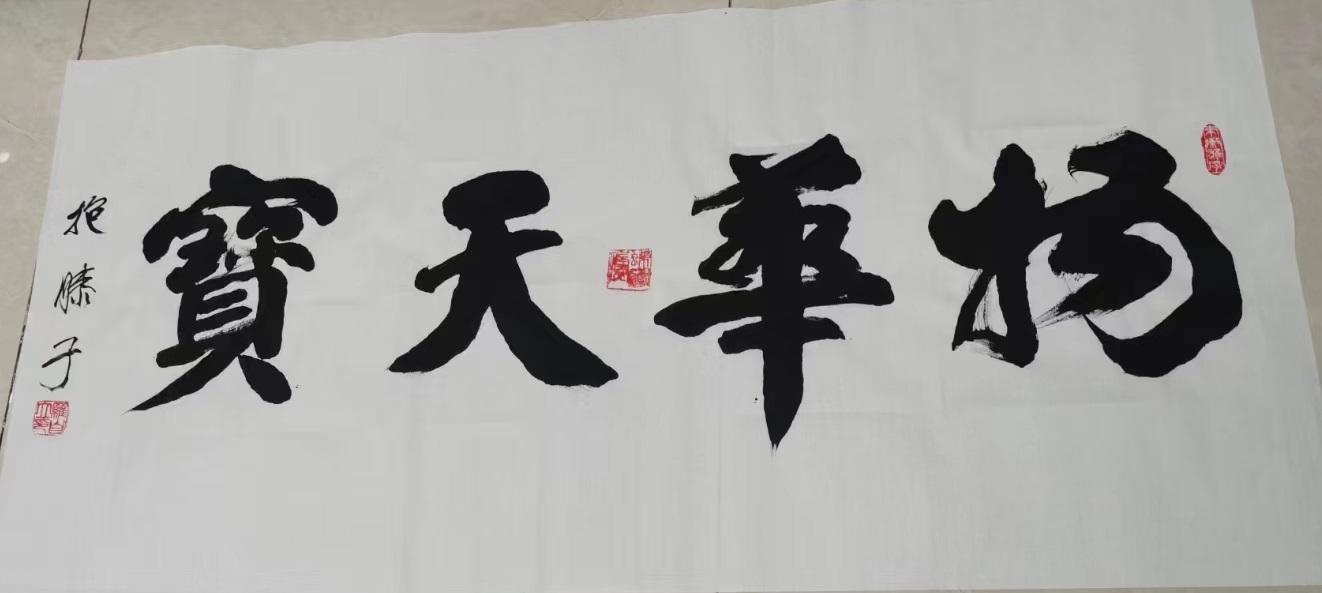 物華天寶
抱膝子